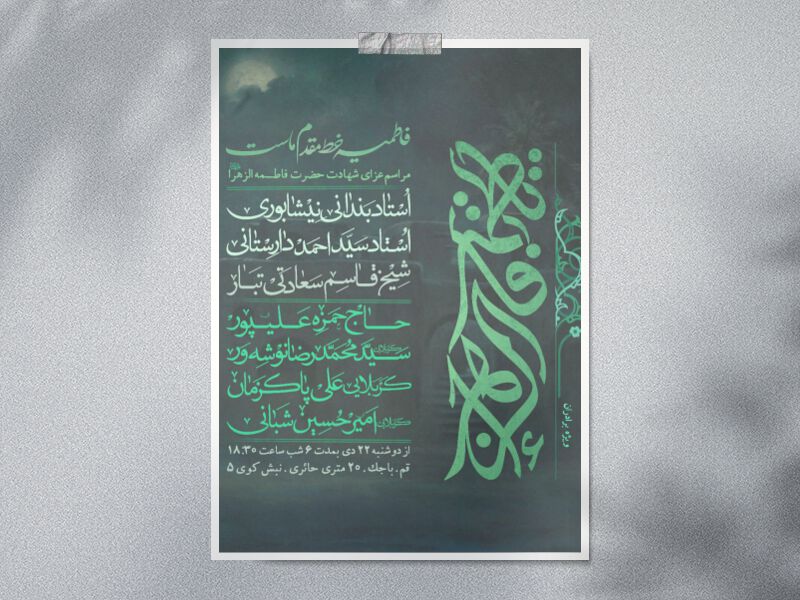 فاطمیه خط مقدم ماست
مراسم عزای شهادت حضرت فاطمه الزهرا
اُستاد بندانی نیشابوری
اُستاد سیّد احمد دارستانی
شیخ قاسم سعادتی تبار
حاج حمزه علیپور
کربلایی سیّد محمّدرضا نوشه ور
کربلایی علی پاکزمان
کربلایی امیرحسین شبانی
از دوشنبه ۲۲ دی بمدت ۶ شب ساعت ۱۸:۳۰
قم . باجک . ۲۰ متری حائری . نبش کوی ۵
ویژه برادران